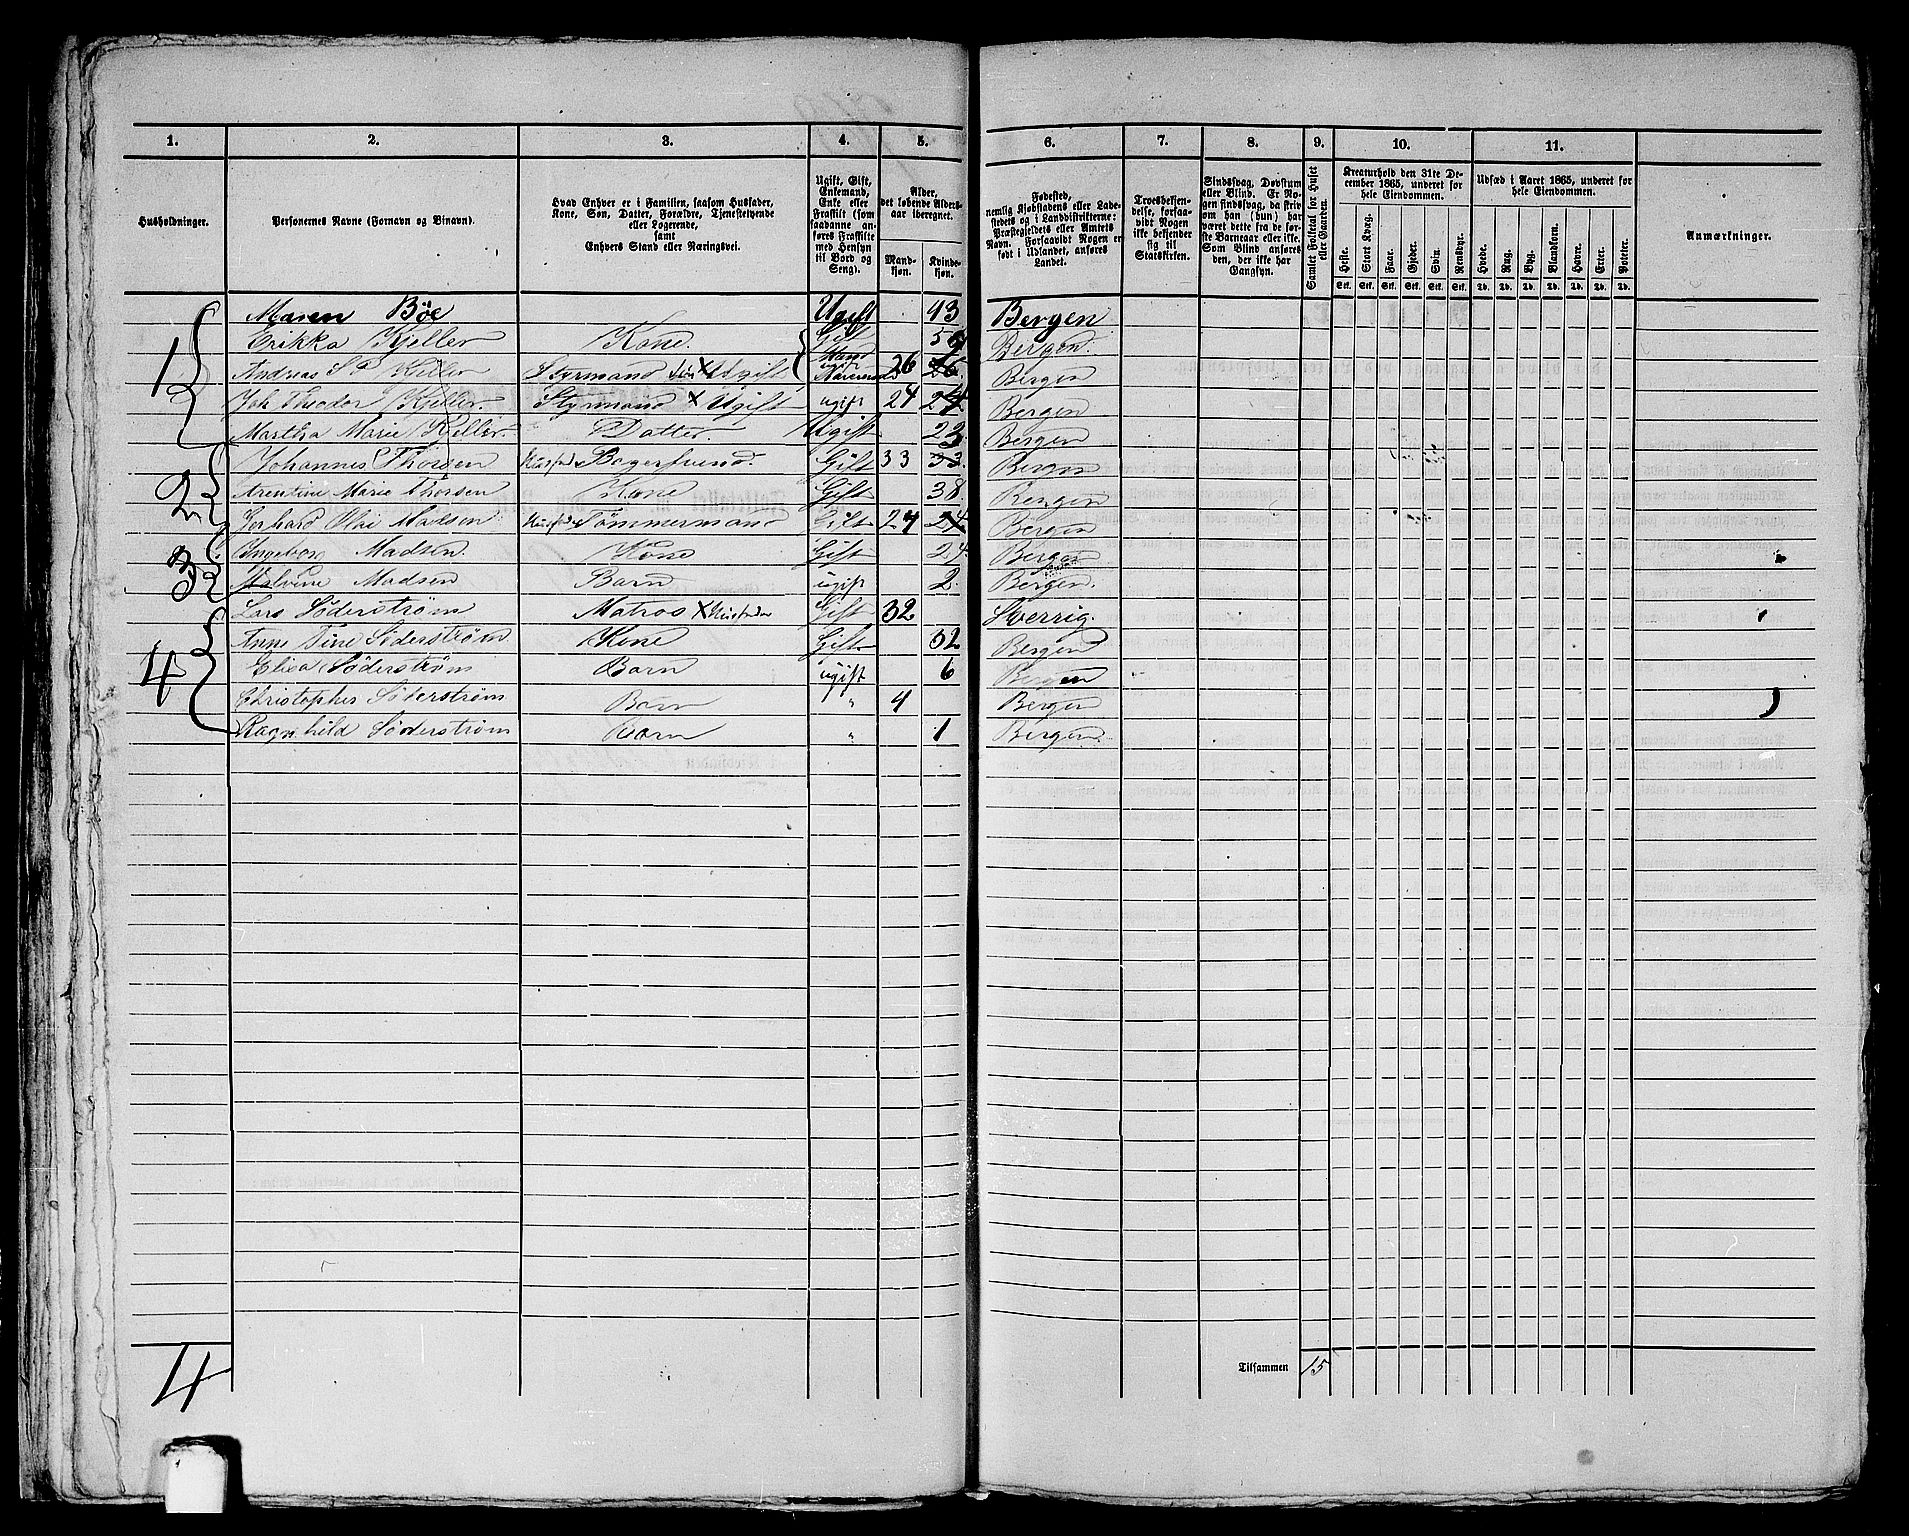 1. 2. 3. 4. 5. 6. 7. 8. 9. 10. 11.
Husholdninger.
Personernes Navne (Fornavn og Binavn).
Hvad Enhver er i Familien, saasom Husfader, Kone, Søn, Datter, Forældre, Tjenestetyende eller Logerende, samt Enhvers Stand eller Næringsvei.
Ugift, Gift, Enkemand, Enke eller Fraskilt (som saadanne anføres Fraskilte med Hensyn til Bord og Seng).
Alder, det løbende Alders-aar iberegnet.
Mandkjøn. Kvindekjøn.
Fødested, nemlig Kjøbstadens eller Ladestedets og i Landdistrikterne: Præstegjeldets eller Amtets Navn. Forsaavidt Nogen er født i Udlandet, anføres Landet.
Troesbekjendelse, forsaavidt Nogen ikke bekjender sig til Statskirken.
Sindssvag, Døvstum eller Blind. Er Nogen sindssvag, da skrives om han (hun) har været dette fra de første Barneaar eller ikke. Som Blind anføres den, der ikke har Gangsyn.
Samlet Folketal for Huset eller Gaarden.
Kreaturhold den 31te December 1865, underet for hele Eiendommen.
Heste. Stort Kvæg. Faar. Gjeder. Svin. Rensdyr.
Stk. Stk. Stk. Stk. Stk. Stk.
Udsæd i Aaret 1865, underet for hele Eiendommen.
Hvede. Rug. Byg. Blandkorn. Havre. Erter. Poteter.
Td. Td. Td. Td. Td. Td. Td.
Anmærkninger.
Maren Bøe Ugift 43 Bergen
1 Erikka Kjeller Kone. Gift Bergen.
Andreas Kjeller Styrmand Søn X Ugift 26 Bergen
Joh Theodor Kjeller. Styrmand X Ugift ugift 24 24 Bergen
Martha Marie Kjeller. Datter. Ugift 23 Bergen
2 Johannes Thorsen Husfader Bagersvend. Gift 33 33. Bergen
Arentine Marie Thorsen Kone Gift 38. Bergen
Gerhard Olai Madsen Husfader Tømmermand Gift 24 24 Bergen
3 Ingeborg Madsen. Kone Gift 24. Bergen
Malvine Madsen Barn ugift 2. Bergen.
4 Lars Söderström Matros X Husfader Gift 32 Sverrig.
Anne Tine Söderström. Kone Gift 32 Bergen
Elisa Söderström Barn ugift 6 Bergen
Christopher Söderström Barn " 4 Bergen
Ragnhild Söderström Barn " 1 Bergen.
Tilsammen 15
4